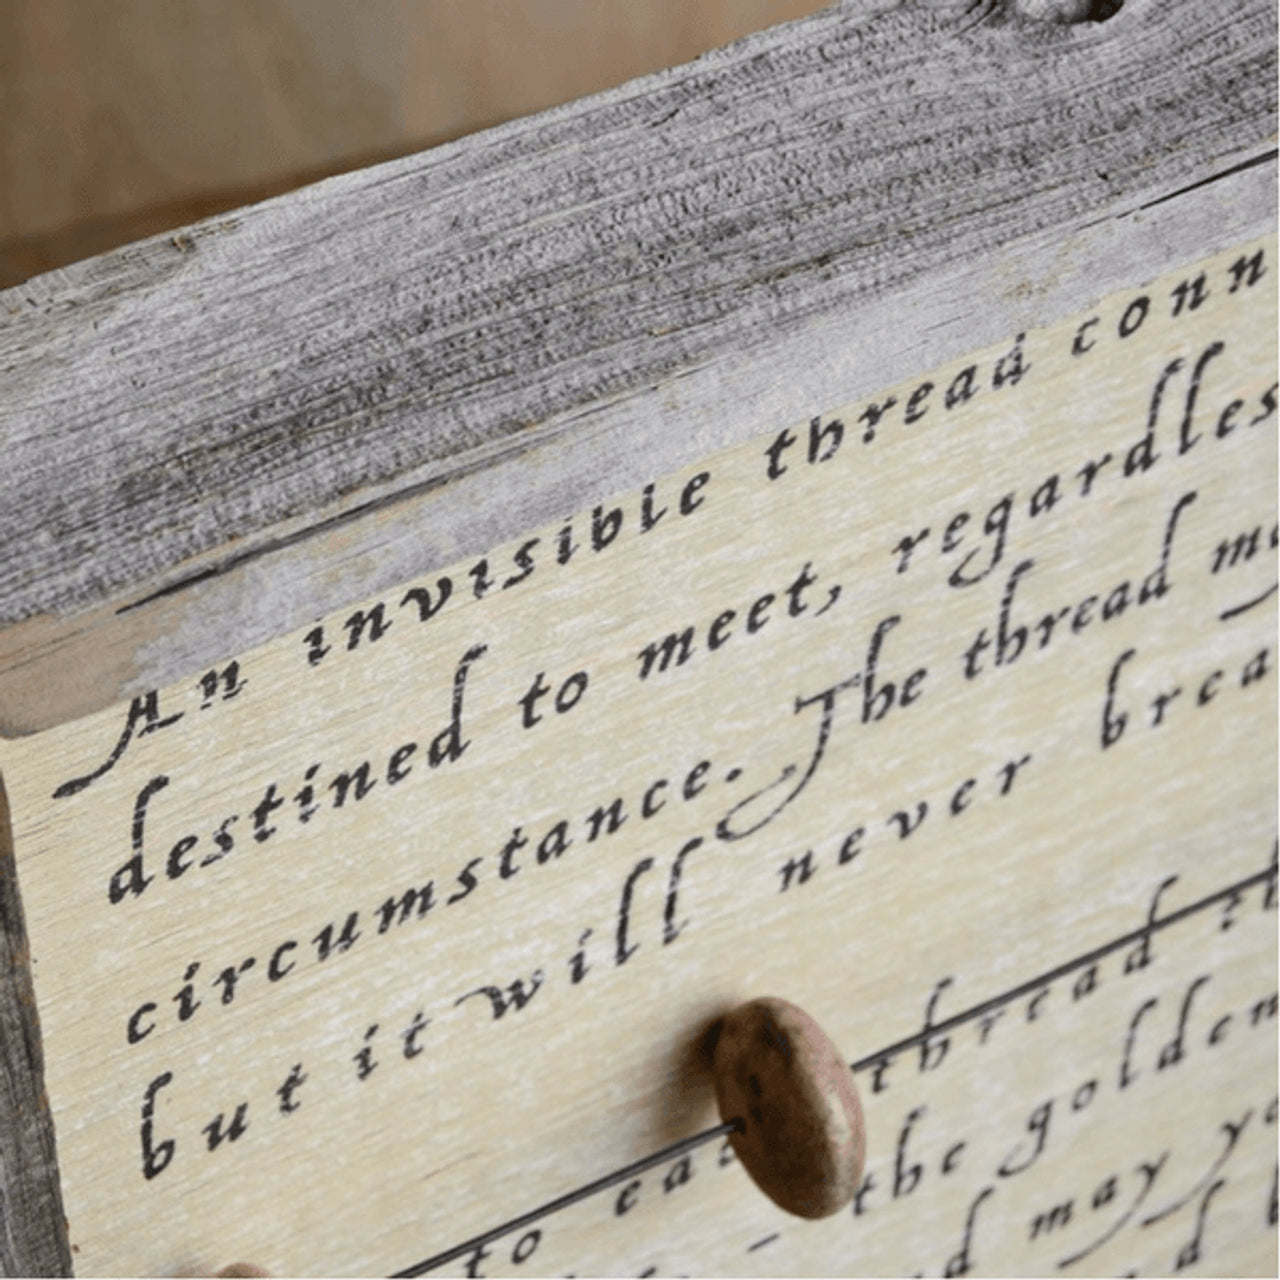 An invisible thread conn
destined to meet, regardles
circumstance. The thread my
but it will never brea
thread
to ea
the golden
may yo